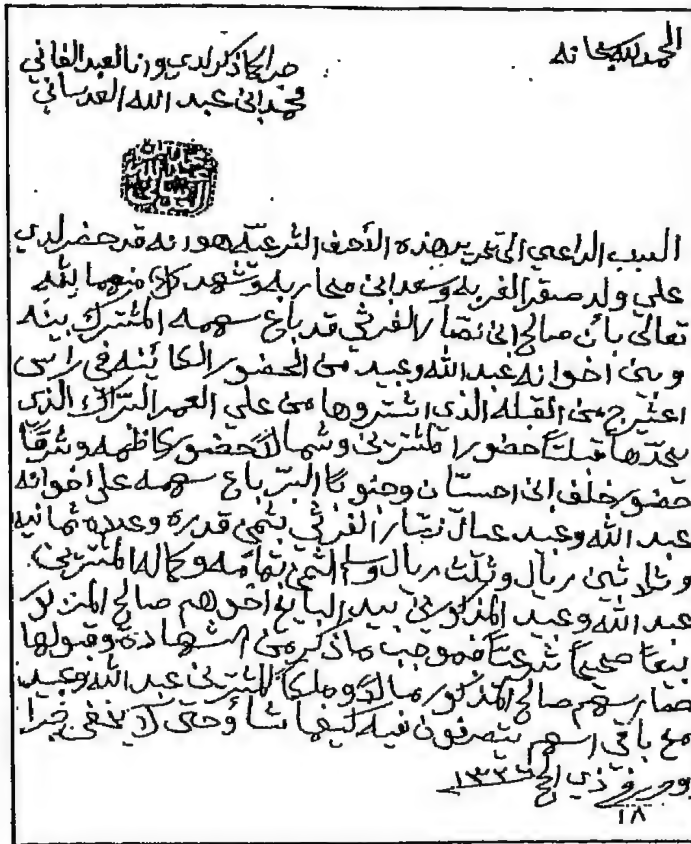 الحمد لله سبحانه
جرى كما ذكر لدي وانا العبد الفاني
محمد ابن عبد الله العدساني
السبب الداعي الى تحرير هذه الأحرف الشرعيه هو انه قد حضر لدي
علي ولد صقر الغربه وسعد ابن محاربه وشهد كل منهما بالله
تعالى بأن صالح ابن نصار القرشي قد باع سهمه المشترك بينه
وبين اخوانه عبد الله وعبيد من الحضور الكائنه في راس
اعشيرج من القبله الذي اشتروها من علي العمر التراك الذي
يحدها قبلتاً حضور المشترين وشمالاً حضور كاظمه وشرقاً
حضور خلف ابن احسان وجنوباً البر باع سهمه على اخوانه
عبد الله وعبيد عيال نصار القرشي بثمن قدره وعدده ثمانيه
وثلاثين ريال وثلث ريال وسلم الثمن بتمامه وكماله المشترين
عبد الله وعبيد المذكورين بيد البايع اخوهم صالح المذكور
بيعاً صحيحاً شرعياً فبموجب ما ذكر من الشهادة وقبولها
صار سهم صالح المذكور مالاً وملكاً للمشترين عبد الله وعبيد
مع باقي اسهم يتصرفون فيه كيفما شاؤ وحتى لا يخفى جرا
وحرر في ذي الحج
١٨